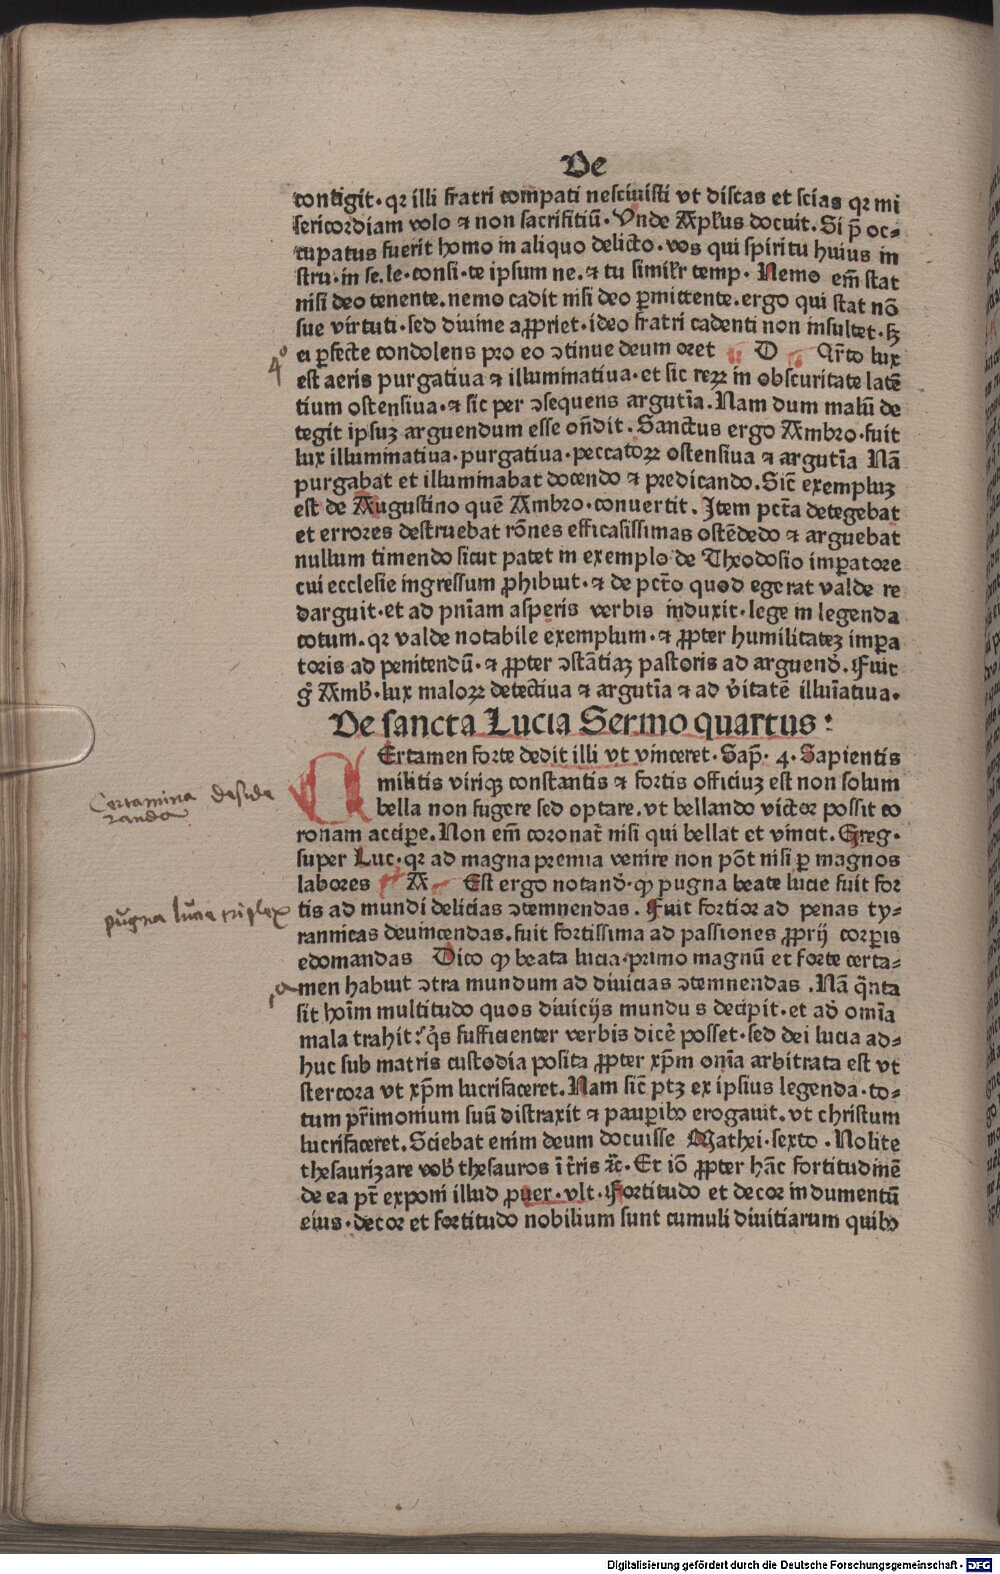 De
contigit· qꝛ illi fratri compati nesciuisti vt discas et scias qꝛ mi
sericordiam volo ⁊ non sacrifitiū· Vnde Apłus docuit. Si p̄ oc⸗
cupatus fuerit homo in aliquo delicto· vos qui spiritu huius in
stru· in se. le· consi· te ipsum ne. ⁊ tu similꝛ temp· Nemo em̄ stat
nisi deo tenente. nemo cadit nisi deo ꝑmittente. ergo qui stat nō
sue virtuti· sed diuine aꝓpriet· ideo fratri cadenti non insultet· sꝫ
4º
ei ꝑfecte condolens pro eo ↄtinue deum oret D Qr̄to lux
est aeris purgatiua ⁊ illuminatiua· et sic reꝝ in obscuritate latē
tium ostensiua· ⁊ sic per ↄsequens argutīa. Nam dum malū de
tegit ipsuꝫ arguendum esse on̄dit. Sanctus ergo Ambro· fuit
lux illuminatiua· purgatiua· peccatoꝝ ostensiua ⁊ argutīa Nā
purgabat et illuminabat docendo ⁊ predicando. Sic̄ exempluꝫ
est de Augustino quē Ambro· conuertit. Item pct̄a detegebat
et errores destruebat rōnes efficasissimas ostēdedo ⁊ arguebat
nullum timendo sicut patet in exemplo de Theodosio imꝑatore
cui ecclesie ingressum ꝓhibuit· ⁊ de pct̄o quod egerat valde re
darguit· et ad pnīam asperis verbis induxit· lege in legenda
totum. qꝛ valde notabile exemplum· ⁊ ꝓpter humilitateꝫ imꝑa
toris ad penitendū· ⁊ ꝓpter ↄstātiaꝫ pastoris ad arguend̛. Fuit
g̊ Amb̛· lux maloꝝ detectiua ⁊ argutīa ⁊ ad v̛itatē illuīatiua.
De sancta Lucia Sermo quartus:
CErtamen forte dedit illi vt vinceret· Sap̄· 4· Sapientis
militis viriqꝫ constantis ⁊ fortis officiuꝫ est non solum
Certamina deside
randa
bella non fugere sed optare. vt bellando victor possit co
ronam acciꝑe. Non em̄ coronat̄ nisi qui bellat et vincit. Greg·
super Luc· qꝛ ad magna premia venire non pōt nisi ꝑ magnos
labores A Est ergo notand̛· ꝙ pugna beate lucie fuit for
pugna lucie triplex
tis ad mundi delicias ↄtemnendas. Fuit fortior ad penas ty⸗
rannicas deuincendas. fuit fortissima ad passiones ꝓprij corꝑis
edomandas Dico ꝙ beata lucia· primo magnū et forte certa⸗
men habuit ↄtra mundum ad diuicias ↄtemnendas. Nā q̄nta
sit hoīm multitudo quos diuicijs mundus decipit· et ad̛ omīa
mala trahit: q̛s sufficienter verbis dicē posset· sed dei lucia ad⸗
huc sub matris custodia posita ꝓpter xp̄m omīa arbitrata est vt
stercora vt xp̄m lucrifaceret. Nam sic̄ ptꝫ ex ipsius legenda· to⸗
tum pr̄imonium suū distraxit ⁊ pauꝑibꝰ erogauit. vt christum
lucrifaceret. Sciebat enim deum docuisse Mathei· sexto· Nolite
thesaurizare vob̛ thesauros ī tr̄ris ⁊c̄· Et iō ꝓpter hāc fortitudinē
de ea pt̄ exponi illud ꝓuer· vlt· Fortitudo et decor indumentū
eius· decor et fortitudo nobilium sunt cumuli diuitiarum quibꝰ
Digitalisierung gefördert durch die Deutsche Forschungsgemeinschaft - DFG